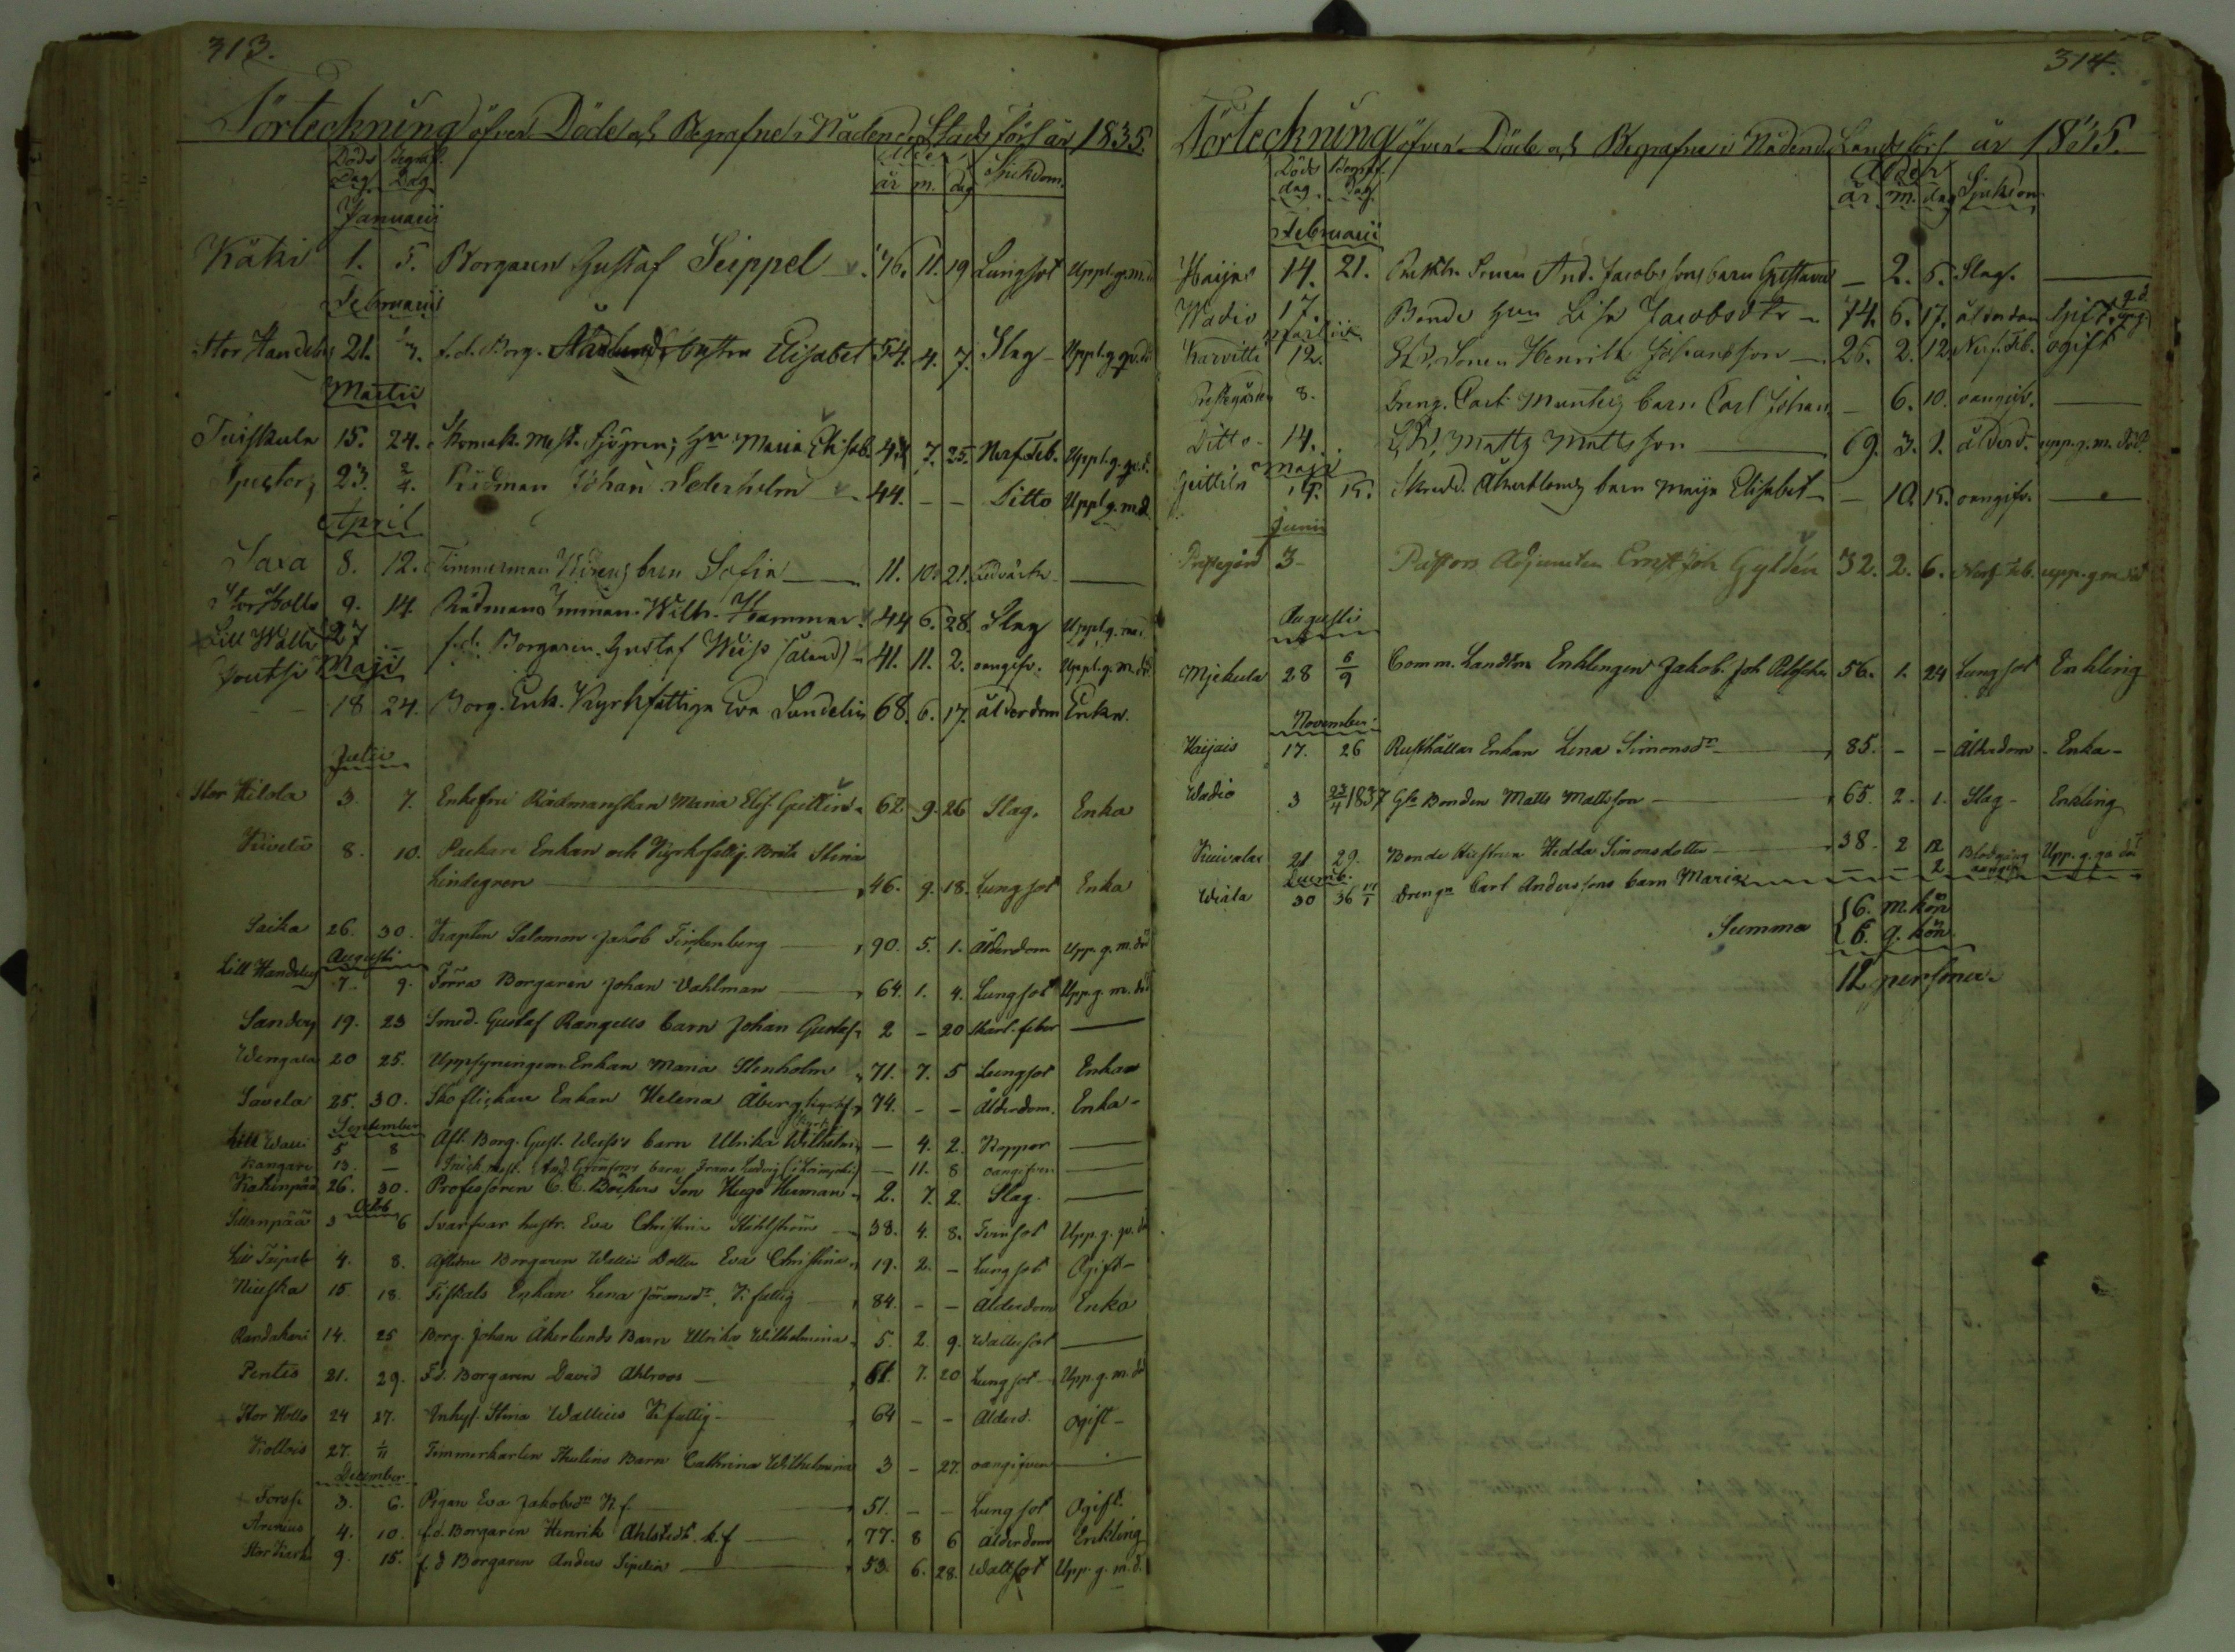 313.
Förteckning öfver Döde och Begrafne i Nådend. Stads förs. år 1835.
Döds Dag Begraf. Dag Ålder år m. dag Sjukdom.
Januarii
Käki 1. 5. Borgaren Gustaf Seippel 76. 11. 19 Lungsot Uppl.g.m.d.
Februarii
Stor Handelus 21. f.d. Borg. hustru Elisabet 54. 4. 7. Slag Uppl.g.qv.d.
Martii
Tuiskula 15. 24. Skomak. Mest. Sjögrens Hu Maria Elisab. 44. 7. 25. Nerf.Feb. Uppl.g.qv.d.
23. 2/4. Rådman Johan Sederholm 44. - - Ditto Uppl.g.m.d.
April
Saxa 8. 12. Timmerman barn Sofia 11. 10. 21.
Stor Kollo 9. 14. Rådman Imman. Wilh. Hammar 44 6. 28. Slag Uppl.g.m.d.
Lill Walli 27 f.d. Borgaren Gustaf Weiss (åland) 41. 11. 2. oangifv. Uppl.g.m.d.
Maji
18 24. Borg. Enk. Kyrkfattiga Eva Sundelin 68. 6. 17. ålderdom Enka.
Julii
Stor Kilola 3. 7. Enkefru Rådmanskan Maria Elis. 62. 9. 26 Slag. Enka
Kivelä 8. 10. Packare Enkan och Kyrkofattig. Brita Stina
Lindegren 46. 9. 18. Lungsot Enka
Saika 26. 30. Kapten Salomon Jakob Finkenberg 90. 5. 1. Ålderdom Upp.g.m.d
Augusti
Lill Handelus 7. 9. Förra Borgaren Johan Dahlman 64. 1. 4. Lungsot Upp.g.m.d
Sanderg 19. 23 Smed. Gustaf Rangells barn Johan Gustaf 2 - 20 Skarl.feber
Wengala 20 25. Uppsyningsm. Enkan Maria Stenholm 71. 7. 5 Lungsot Enka
Savela 25. 30. Skoflickare Enkan Helena Åberg 74. - - Ålderdom. Enka
September
Lill Walli 5 8 Afl. Borg. Gust. Weiss's barn Ulrika Wilhelm. - 4. 2. Koppor
Kangari 13. - Snick. mest. And. Grönfors barn Frans Ludvig - 11. 8 oangifven
Kakinpää 26. 30. Professoren C. C. Böckers Son Hugo Herman 2. 7. 2. Slag.
Octob
Sillanpää 3 6 Svarfvar hustr. Eva Christina Ståhlström 38. 4. 8. Tvinsot Upp.g.qv.d
Lill Teipale 4. 8. Aflidne Borgaren Wallins Dotter Eva Christina 19. 2. - Lungsot Ogift
Niuska 15. 18. Fiskals Enkan Lena Jöransdr, K.fattig 84. - - Ålderdom Enka
Randakari 14. 25 Borg. Johan Åkerlunds Barn Ulrika Wilhelmina 5. 2. 9. Wattusot
Pentes 21. 29. F.d. Borgaren David Ahlroos 61. 7. 20 Lungsot Upp.g.m.d
Stor Kollo 24 27. Inhys. Stina Wallius K.fattig 64 - - Ålderd. ogift
Kollois 27. 1/11 Timmerkarlen Thulins Barn Cathrina Wilhelmina 3 - 27. oangifven
December
Torssi 3. 6. Pigan Eva Jakobsdr K.f. 51. - - Lungsot Ogift
Arenius 4. 10. f.d. Borgaren Henrik Ahlstedt k.f 77. 8 6 ålderdom Enkling
Stor Karh 9. 15. f.d Borgaren Anders Sipelin 53. 6. 28. Wattsot Upp.g.m.d.
314.
Förteckning öfver Döde och Begrafne i Nådend. Lands förs år 1835.
Döds dag. Begraf. dag Ålder år. m. dag Sjukdom
Februarii
Haijas 14. 21. Rusth. Sonen And. Jacobssons barn Gustava - 2. 5. Slag.
Wadio 17. Bonde Hun Lisa Jacobsdtr 74. 6. 17. ålderdom Gift
Martii
Karvitti 12. Sonen Henrik Johansson 26. 2. 12. Nerf.Feb. ogift
Prestegården 8. Dreng. Carl Munters barn Carl Johan - 6. 10. oangifv.
Ditto 14. Matts Mattsson 69. 3. 1. ålderd. upp.g.m.död
Maji
Geittilä 9. 15. Skredd. barn Maja Elisabet - 10. 15. oangifv.
Junii
Prestegård 3 Pastors Adjuncten Ernst Joh Gyldén 32. 2. 6. Nerf.Feb. upp.g.m.död
Augusti
Mjekula 28 6/9 Comm. Landtm Enklingen Jakob Joh 56. 1. 24 Lungsot Enkling
November
Haijais 17. 26 Rusthållar Enkan Lena Simonsdr 85. - - Ålderdom Enka
Wadio 3 23/4 1837 Bonden Matts Mattsson 65. 2. 1. Slag Enkling
Kuivalax 21 29. Bonde Hustrun Hedda Simonsdotter 38. 2 12 Blodgång Upp.g.qv död
Decemb.
Wiala 30 36 17/1 Drengn Carl Anderssons barn Maria - - 2 oangifv
Summa 6. m.kön
6. q.kön
12 personer.